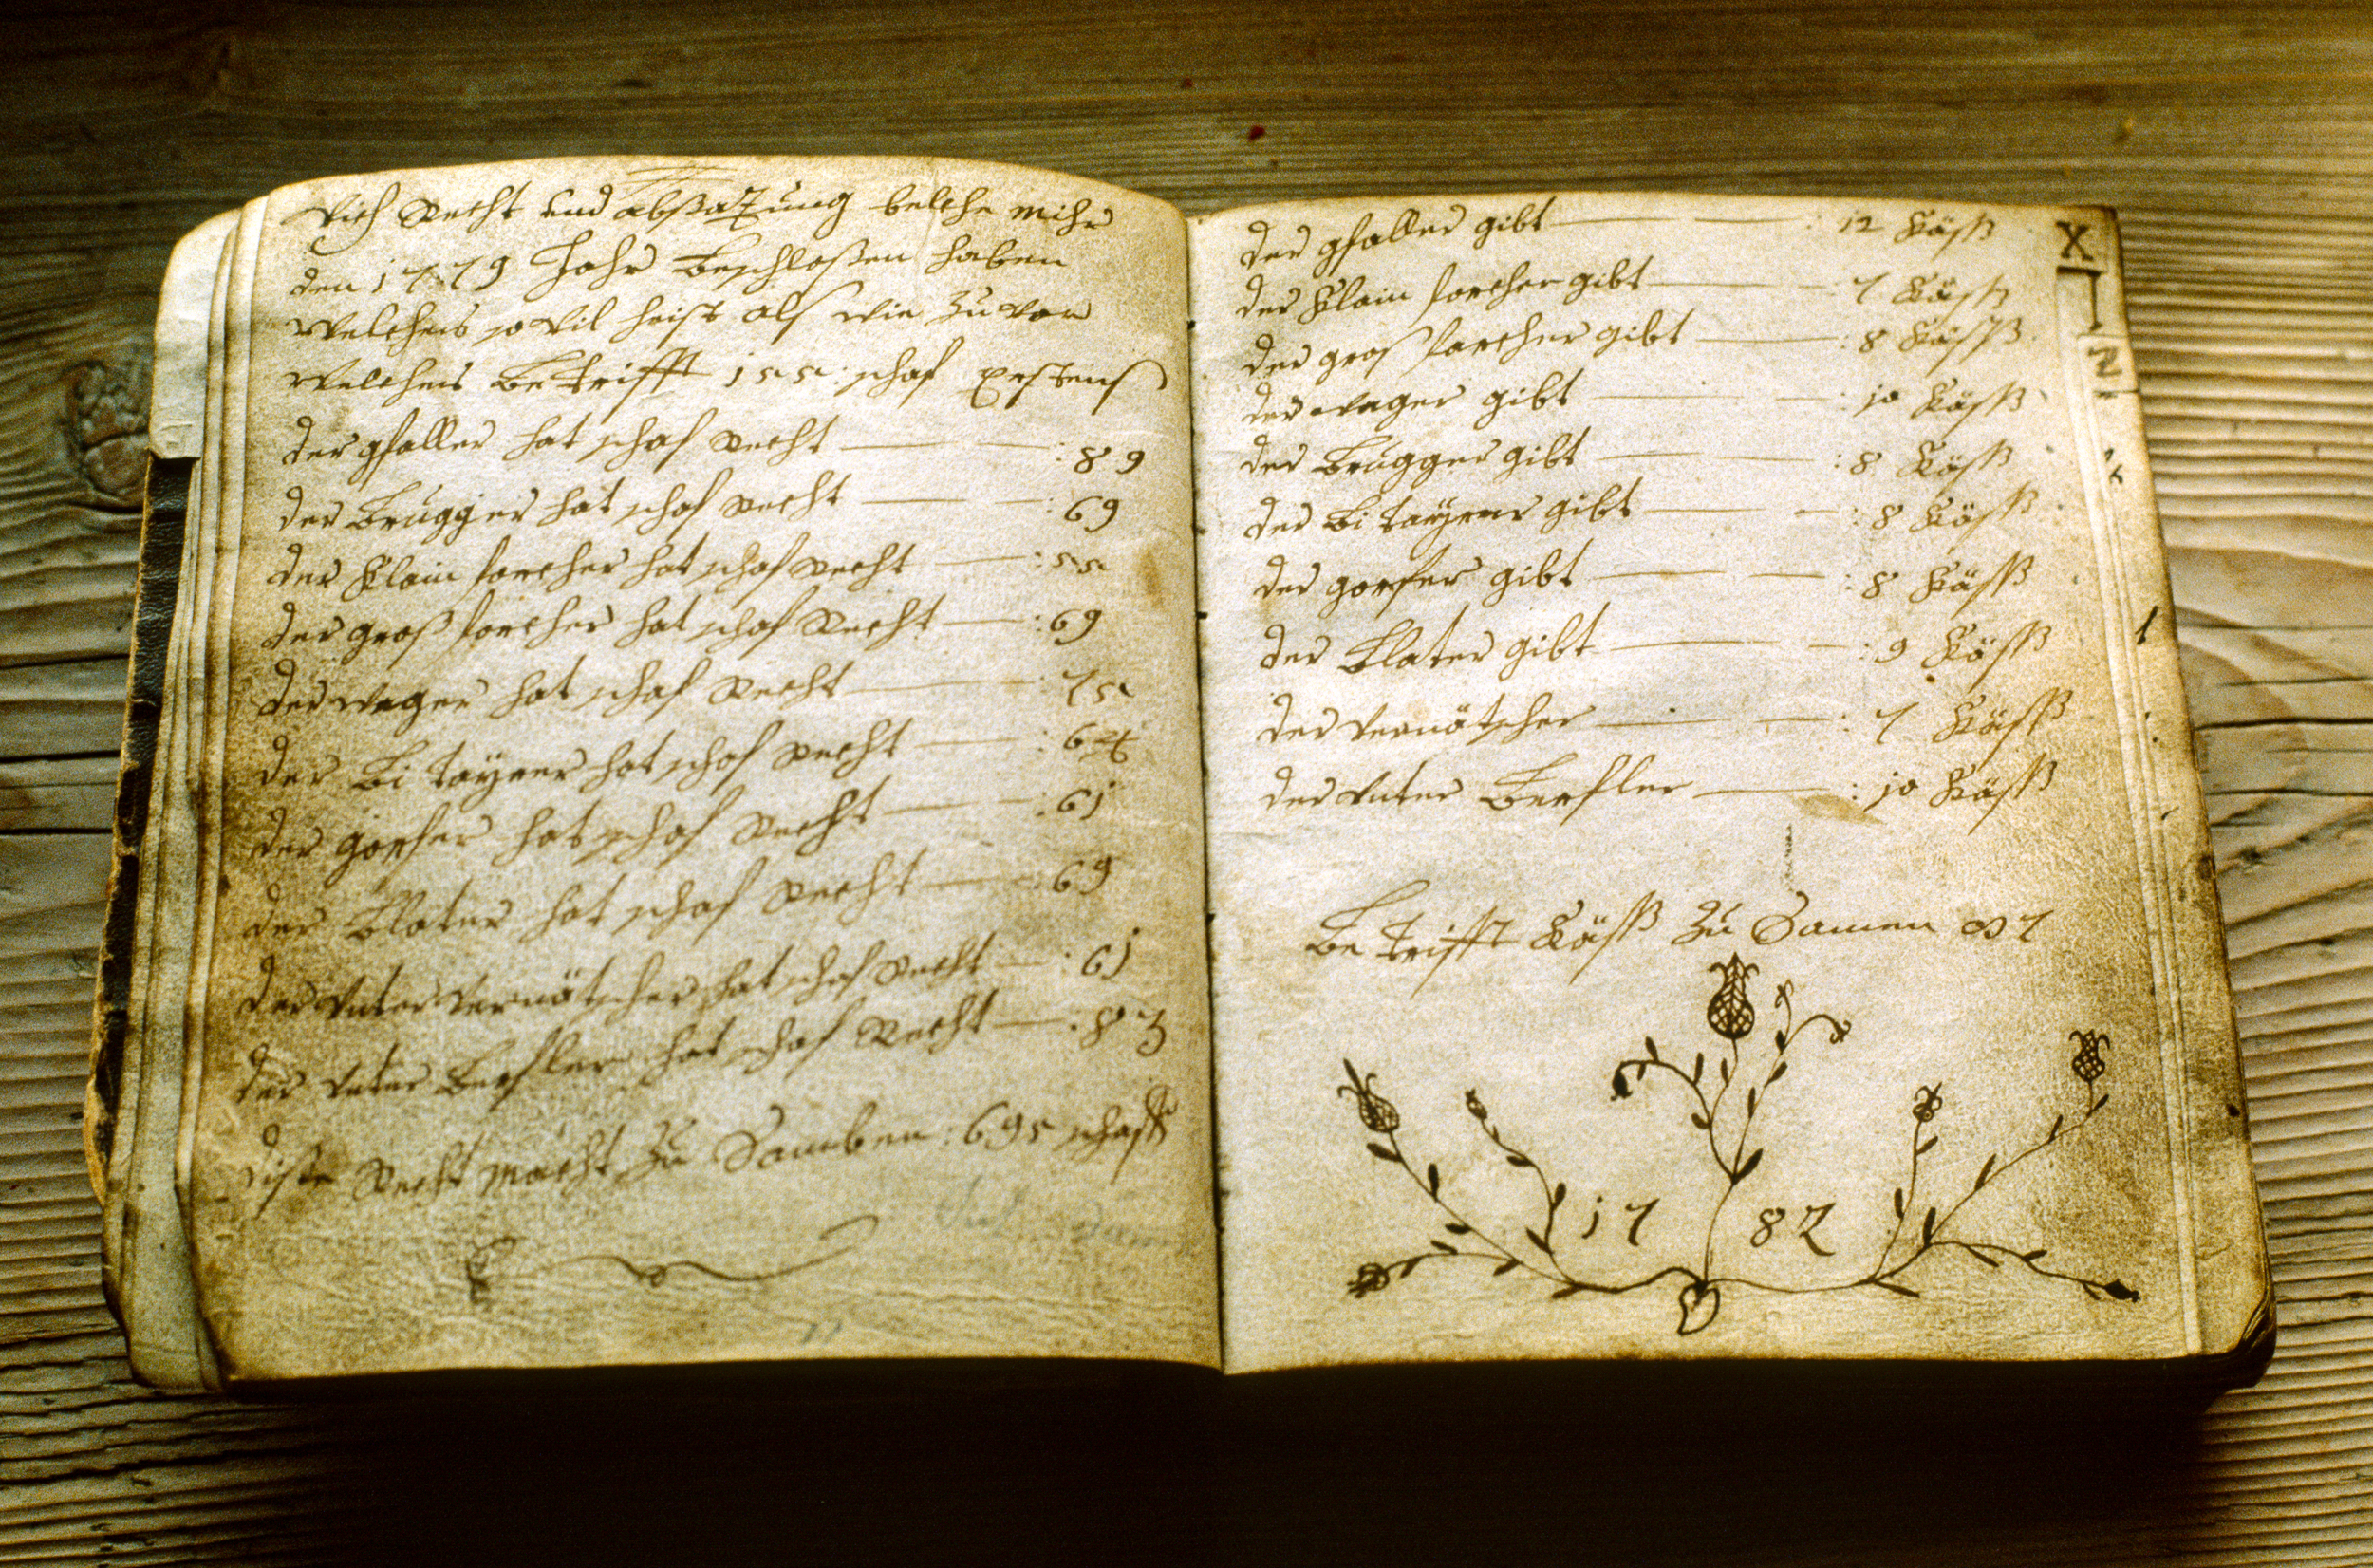 Vich Recht und absazung belche mihr
den 1779 Jahr Beschlosen haben
Welches so vil heist als wie zu vor
Welches Betrifft 155: schaf Erstens
der gfaller hat schaf Recht : 89
der Brugger hat schaf Recht : 69
der Klain forcher hat schaf Recht : 55
der groß forcher hat schaf Recht : 69
der weger hat schaf Recht : 75
der Bitayrer hat schaf Recht : 64
der gorfer hat schaf Recht : 61
der Blater hat schaf Recht : 69
der unter vernätscher hat schaf Recht : 61
der unter Berfler hat schaf Recht : 83
dise Recht macht zu Samben : 695 schaff
der gfaller gibt : 12 Käß
der Klain forcher gibt : 7 Käß
der groß forcher gibt : 8 Käß
der weger gibt : 10 Käß
der Brugger gibt : 8 Käß
der Bitayrer gibt : 8 Käß
der gorfer gibt : 8 Käß
der Blater gibt : 9 Käß
der vernätscher : 7 Käß
der unter Berfler : 10 Käß
Betrifft Käß zu Samen 87
17 82
X
Z